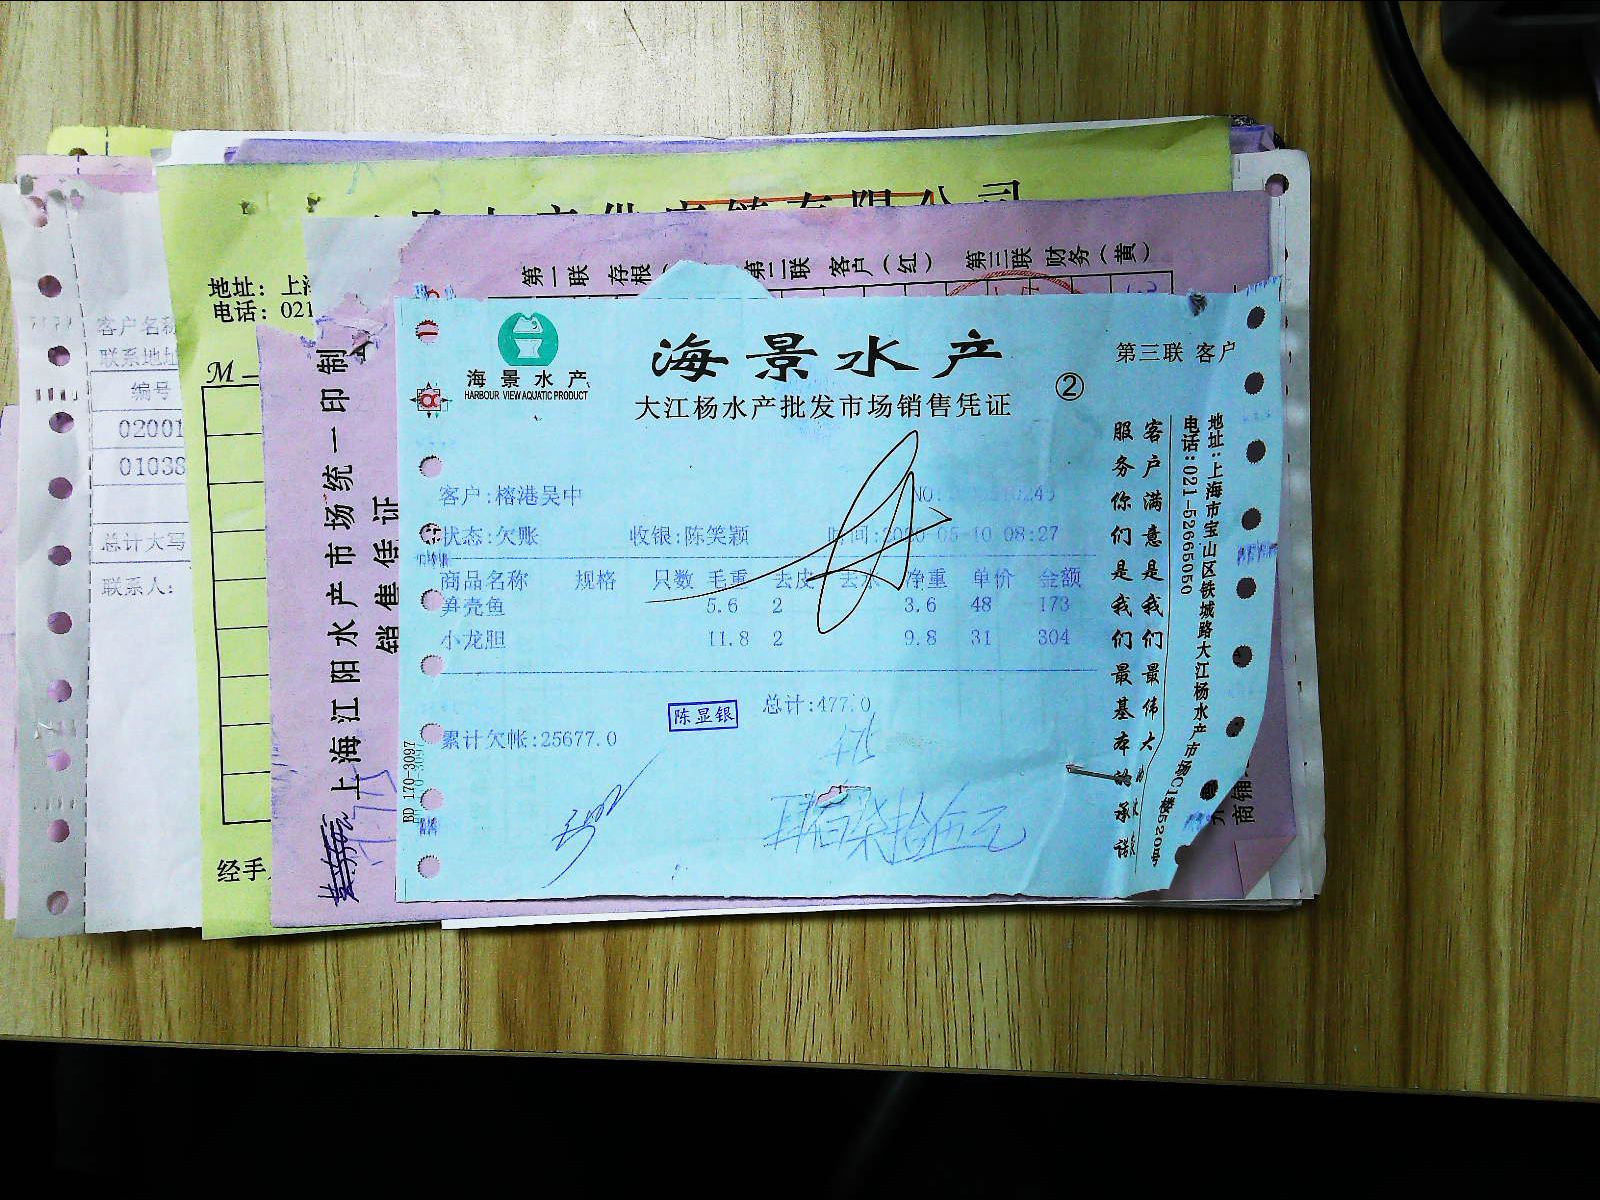 海景水产
HARBOUR VIEW AQUATIC PRODUCT
海景水产
大江杨水产批发市场销售凭证
②
第三联 客户
客户:榕港吴中
状态:欠账 收银:陈笑颖 时间: 05-10 08:27
商品名称 规格 只数 毛重 去皮 去水 净重 单价 金额
笋壳鱼 5.6 2 3.6 48 173
小龙胆 11.8 2 9.8 31 304
总计:477.0
陈显银
累计欠帐:25677.0
475
肆佰柒拾伍元
BD 170-3097
客户满意是我们最伟大
服务你们是我们最基本的承诺
地址:上海市宝山区铁城路大江杨水产市场C1楼520号
电话:021-52665050
第一联 存根 第二联 客户(红) 第三联 财务(黄)
上海江阳水产市场统一印制
销售凭证
商铺
有限公司
地址:上海
电话:021
M
经手
客户名称
联系地址
编号
02001
01038
总计大写
联系人: